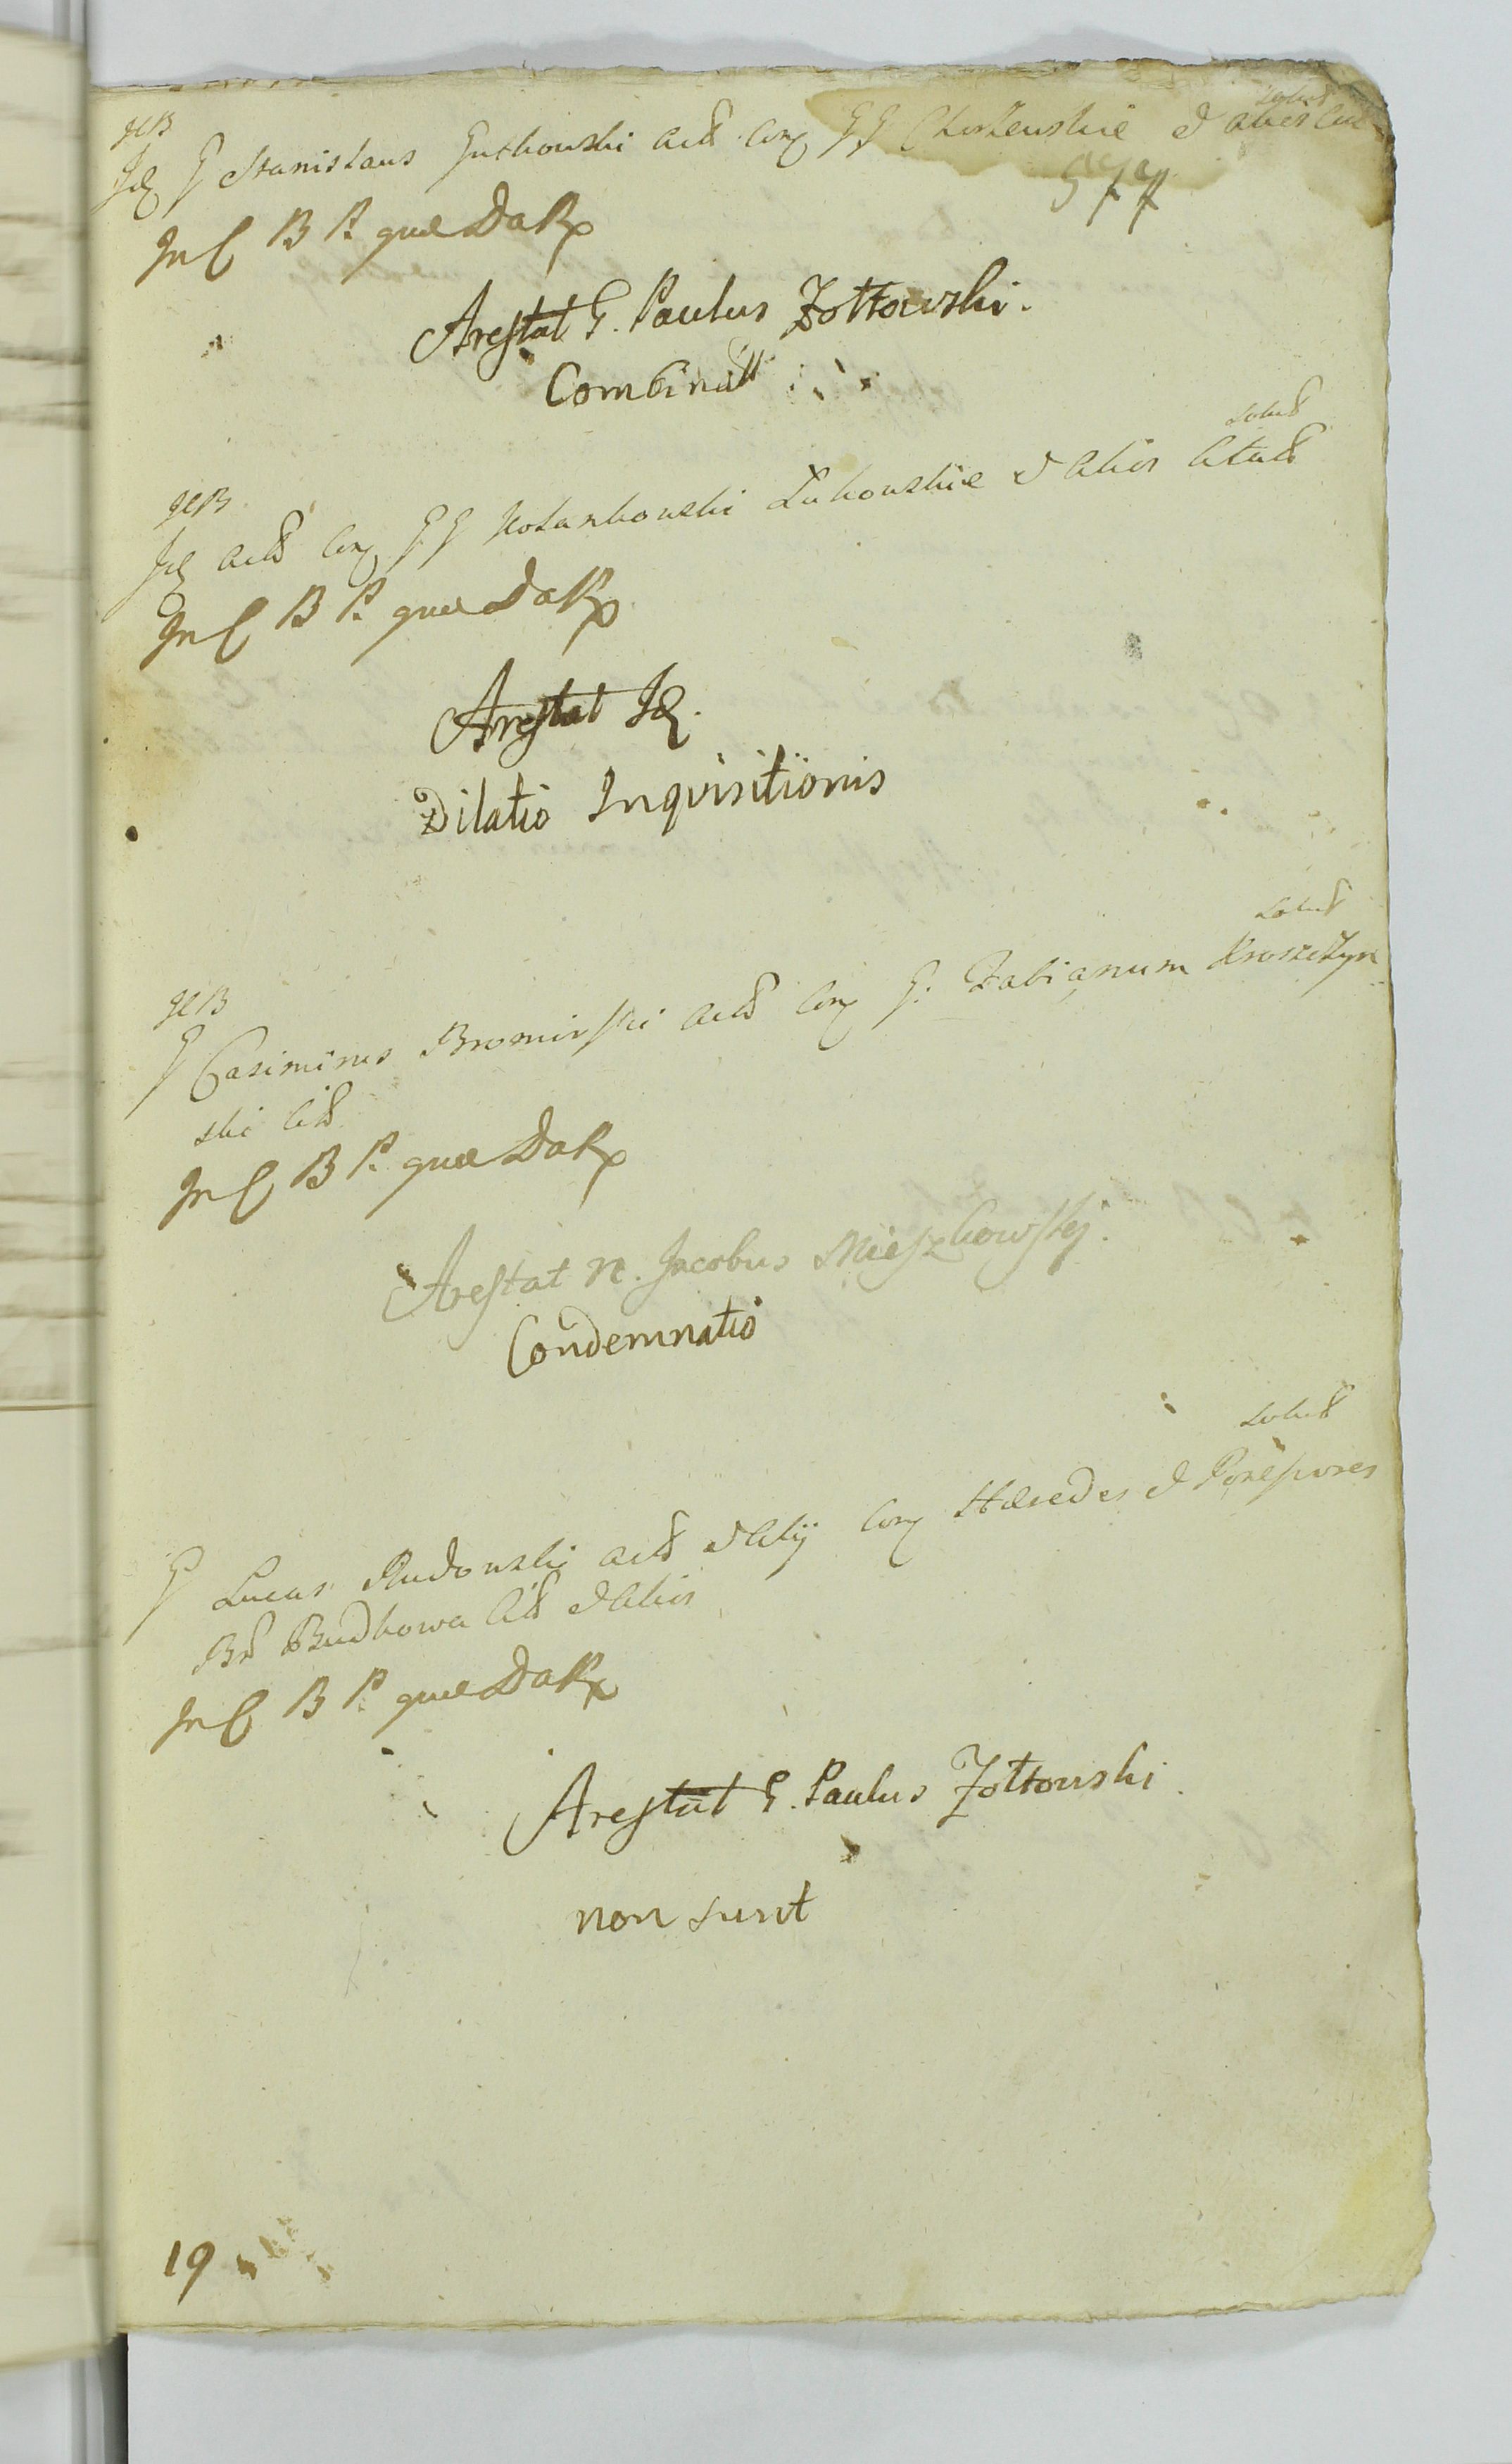 Solvit
JCB
Id G Stanislaus Gutkowski Act Con GG Chorzewskie et alios Cit
577
In C B P. quae DaRp
Arestat G. Paulus Zołtowski.
Combinatt
Solvit
JCB
Id Act Con GG Kolankowski Łukowskie et Alios Citatt
In C B P. quae DaRp
Arestat Id.
Dilatio Inqvisitionis
Solvit
JCB
G Casimirus Bromirski Act Con G. Fabianum Kroszczyn
ski Cit
In C B P. quae DaRp
Arestat N. Jacobus Mieszkowskj.
Condemnatio
Solvit
G Lucas Rudowski Act et Alij Con Haeredes et Possessores
Br Budkowa Cit et Alios
In C B P. quae DaRp
Arestat G. Paulus Zołtowski
non sunt
19